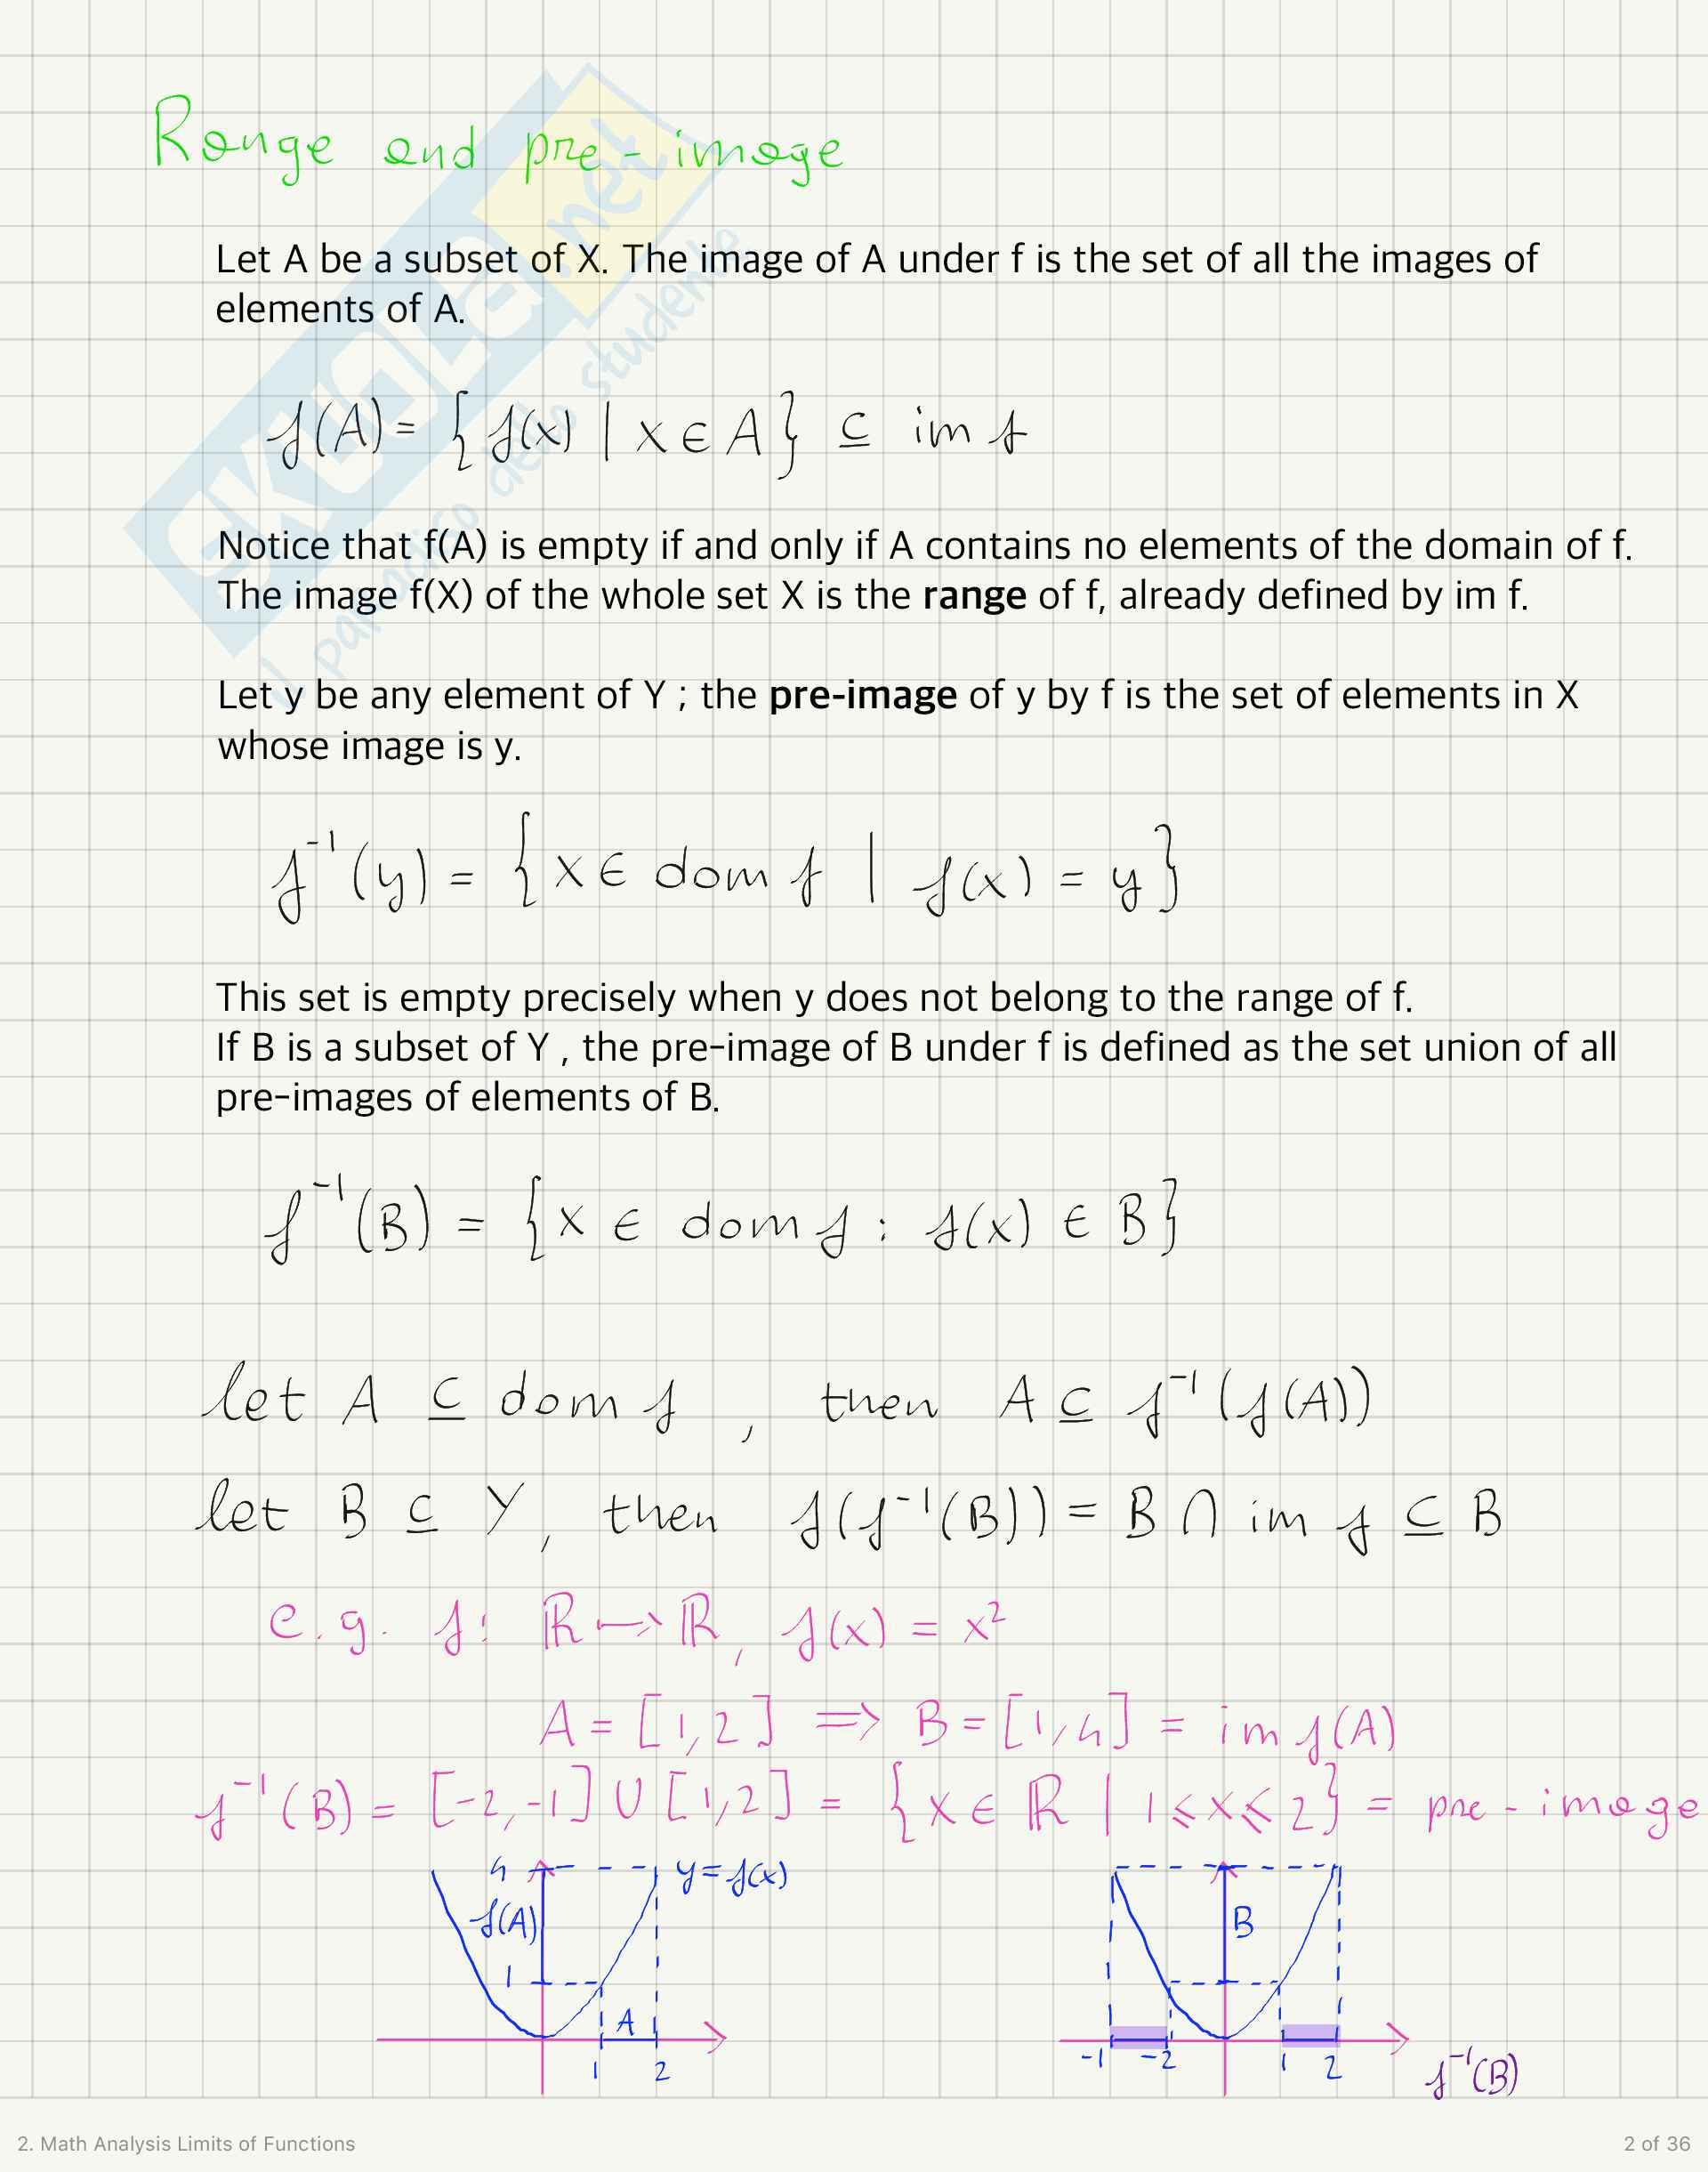 Range and pre-image
Let A be a subset of X. The image of A under f is the set of all the images of
elements of A.
f(A) = {f(x) | x ∈ A} ⊆ im f
Notice that f(A) is empty if and only if A contains no elements of the domain of f.
The image f(X) of the whole set X is the range of f, already defined by im f.
Let y be any element of Y ; the pre-image of y by f is the set of elements in X
whose image is y.
f⁻¹(y) = {x ∈ dom f | f(x) = y}
This set is empty precisely when y does not belong to the range of f.
If B is a subset of Y , the pre-image of B under f is defined as the set union of all
pre-images of elements of B.
f⁻¹(B) = {x ∈ dom f : f(x) ∈ B}
let A ⊆ dom f , then A ⊆ f⁻¹(f(A))
let B ⊆ Y, then f(f⁻¹(B)) = B ∩ im f ⊆ B
e.g. f: ℝ ↦ ℝ, f(x) = x²
A = [1,2] ⟹ B = [1,4] = im f(A)
f⁻¹(B) = [-2,-1] ∪ [1,2] = {x ∈ ℝ | 1 ⩽ x ⩽ 2} = pre-image
4 y = f(x)
f(A) B
1
A
1 2 -1 -2 1 2
f⁻¹(B)
SKUOLA.net
il paradiso dello studente
2. Math Analysis Limits of Functions 2 of 36